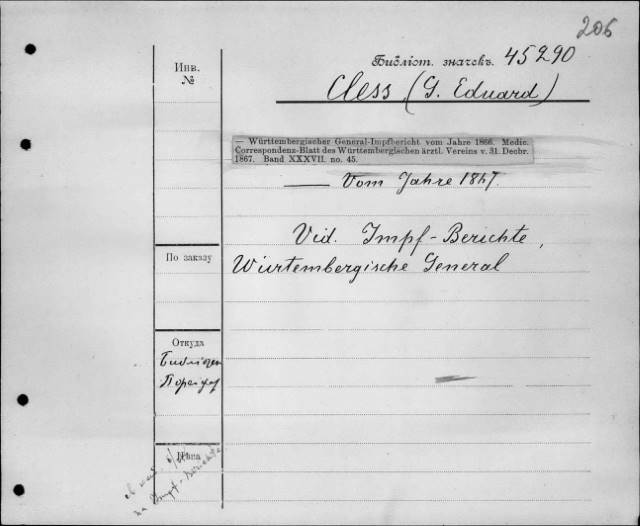 206
Библіот. значекъ. 45290
Инв.
№
Cless, (G. Eduard)
— Württembergischer General-Impfbericht vom Jahre 1866. Medic.
Correspondenz-Blatt des Württembergischen ärztl. Vereins v. 31. Decbr.
1867. Band XXXVII. no. 45.
—— Vom Jahre 1867.
Vid. Impf-Berichte,
Würtembergische General
По заказу
Откуда
Цѣна
на Impf-Berichte